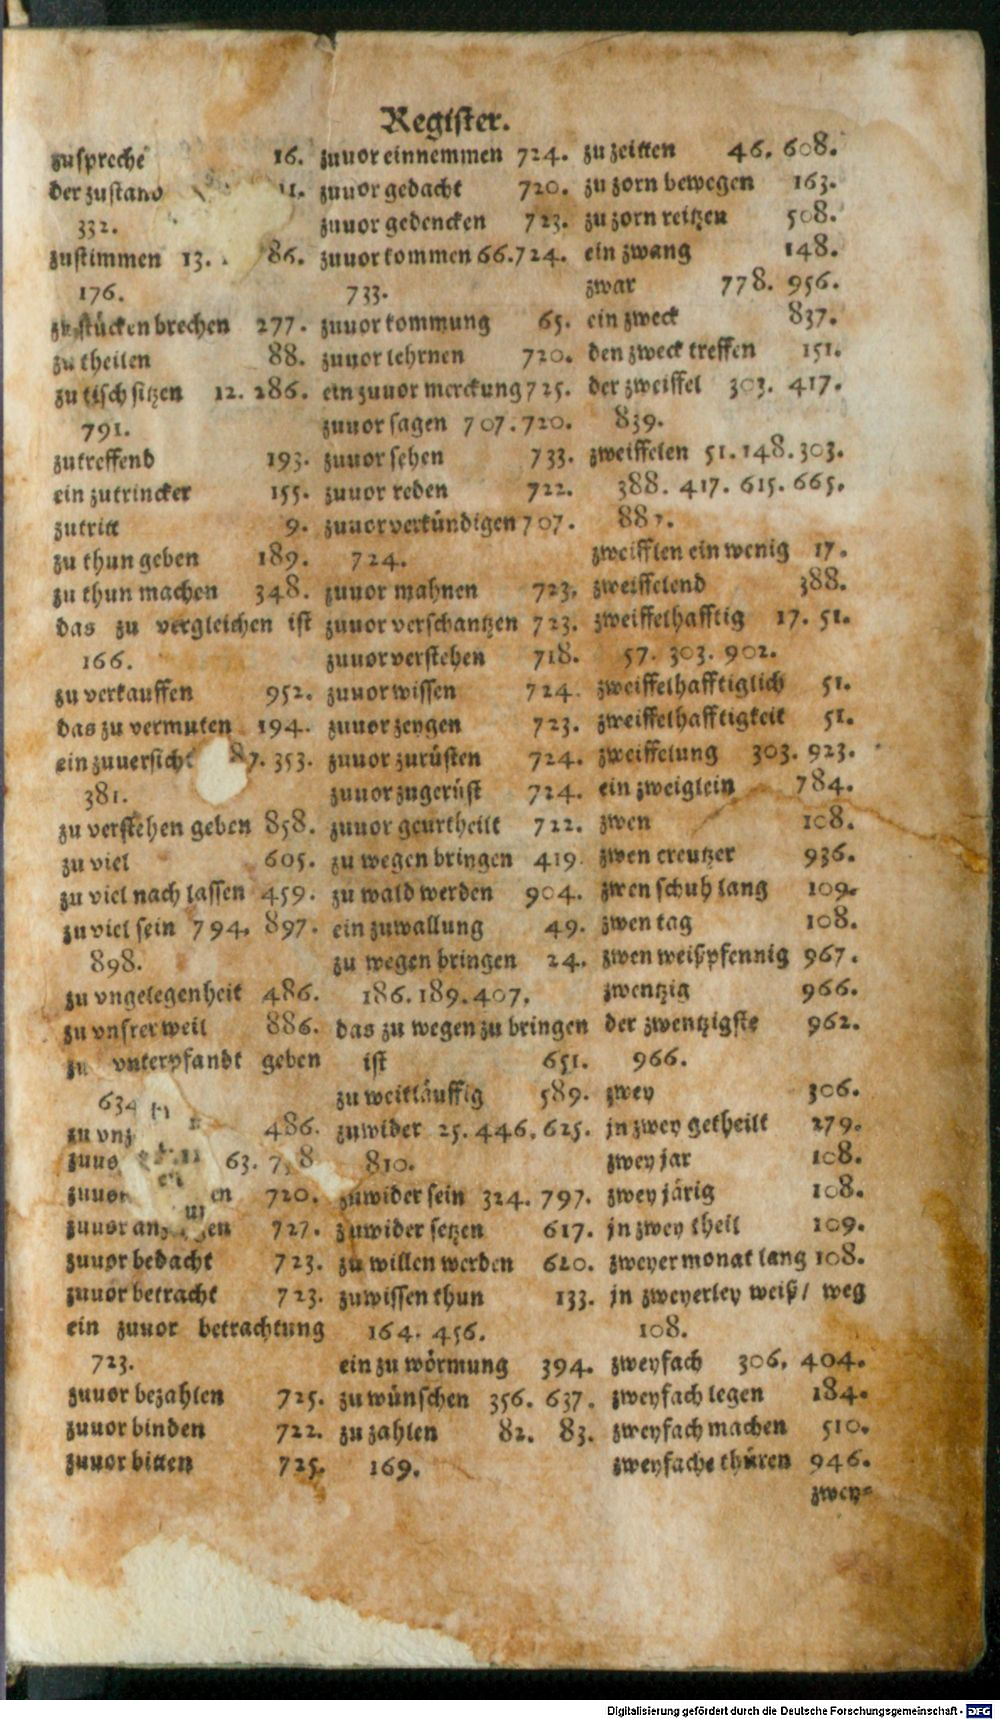 Register.
zuspreche 16.
der zustand 11.
332.
zustimmen 13. 86.
176.
zu stücken brechen 277.
zu theilen 88.
zu tisch sitzen 12. 286.
791.
zutreffend 193.
ein zutrincker 155.
zutritt 9.
zu thun geben 189.
zu thun machen 348.
das zu vergleichen ist
166.
zu verkauffen 952.
das zu vermuten 194.
ein zuuersicht 87. 353.
381.
zu verstehen geben 858.
zu viel 605.
zu viel nach lassen 459.
zu viel sein 794. 897.
898.
zu vngelegenheit 486.
zu vnsrer weil 886.
zu vnterpfandt geben
634
zu vnz 486.
zuuo 63. 7 8
zuuor en 720.
zuuor an gen 727.
zuuor bedacht 723.
zuuor betracht 723.
ein zuuor betrachtung
723.
zuuor bezahlen 725.
zuuor binden 722.
zuuor bitten 725.
zuuor einnemmen 724.
zuuor gedacht 720.
zuuor gedencken 723.
zuuor kommen 66. 724.
733.
zuuor kommung 65.
zuuor lehrnen 720.
ein zuuor merckung 725.
zuuor sagen 707. 720.
zuuor sehen 733.
zuuor reden 722.
zuuor verkündigen 707.
724.
zuuor mahnen 723.
zuuor verschantzen 723.
zuuor verstehen 718.
zuuor wissen 724.
zuuor zeygen 723.
zuuor zurüsten 724.
zuuor zugerüst 724.
zuuor geurtheilt 722.
zu wegen bringen 419.
zu wald werden 904.
ein zuwallung 49.
zu wegen bringen 24.
186. 189. 407.
das zu wegen zu bringen
ist 651.
zu weitläuffig 589.
zuwider 25. 446. 625.
810.
zuwider sein 324. 797.
zuwider setzen 617.
zu willen werden 620.
zuwissen thun 133.
164. 456.
ein zu wörmung 394.
zu wünschen 356. 637.
zu zahlen 82. 83.
169.
zu zeitten 46. 608.
zu zorn bewegen 163.
zu zorn reitzen 508.
ein zwang 148.
zwar 778. 956.
ein zweck 837.
den zweck treffen 151.
der zweiffel 303. 417.
839.
zweiffelen 51. 148. 303.
388. 417. 615. 665.
887.
zweifflen ein wenig 17.
zweiffelend 388.
zweiffelhafftig 17. 51.
57. 303. 902.
zweiffelhafftiglich 51.
zweiffelhafftigkeit 51.
zweiffelung 303. 923.
ein zweiglein 784.
zwen 108.
zwen creutzer 936.
zwen schuh lang 109.
zwen tag 108.
zwen weißpfennig 967.
zwentzig 966.
der zwentzigste 962.
966.
zwey 306.
jn zwey getheilt 279.
zwey jar 108.
zwey järig 108.
jn zwey theil 109.
zweyer monat lang 108.
jn zweyerley weiß / weg
108.
zweyfach 306. 404.
zweyfach legen 184.
zweyfach machen 510.
zweyfache thüren 946.
zwey-
Digitalisierung gefördert durch die Deutsche Forschungsgemeinschaft - DFG